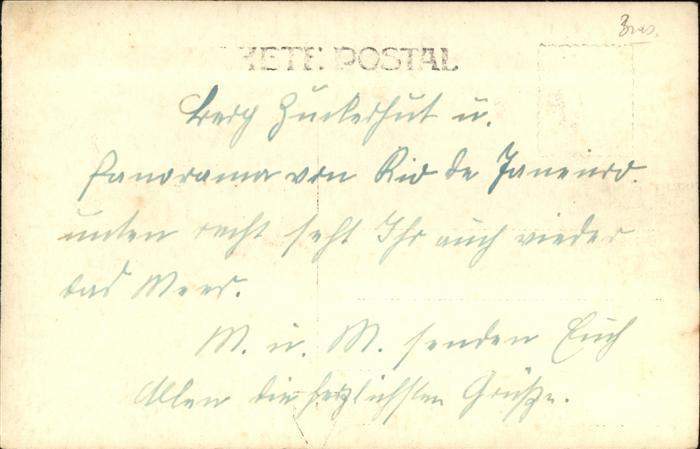 Bras.
HETE POSTAL
Berg Zuckerhut u.
Panorama von Rio de Janeiro.
unten recht seht Ihr auch wieder
das Meer.
M. u. M. senden Euch
Allen die herzlichsten Grüße.